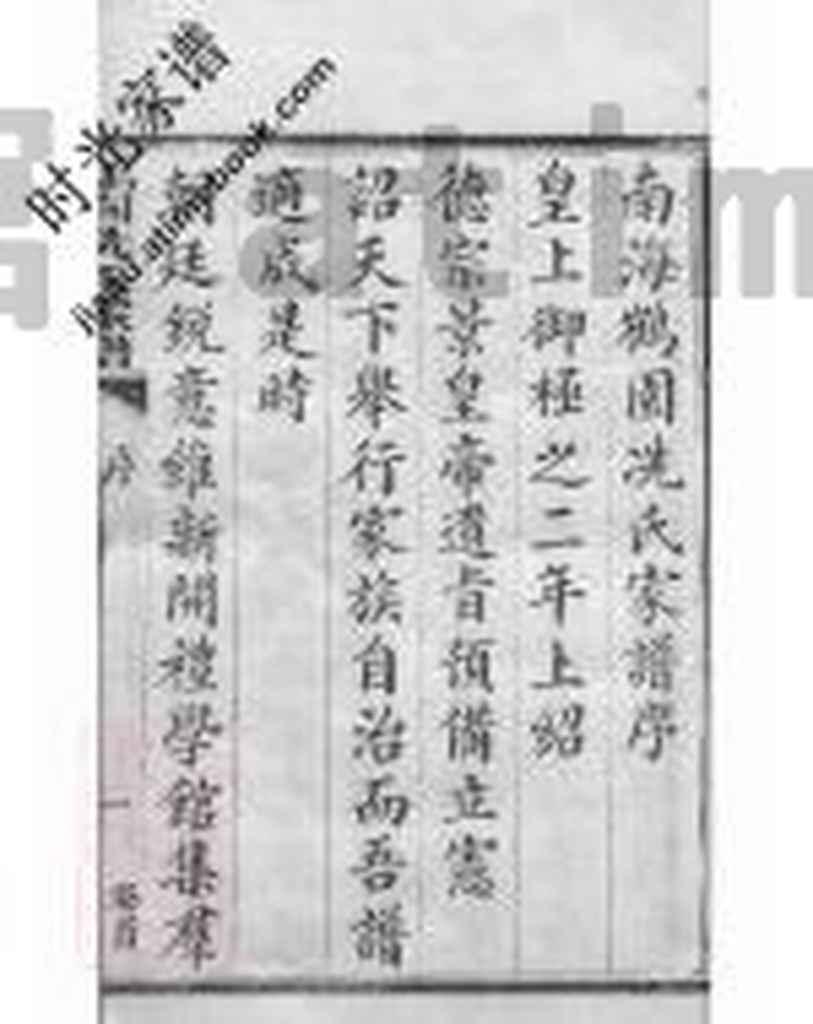 南海鶴園冼氏家譜序
皇上御極之二年上紹
德宗景皇帝遺旨預備立憲
詔天下舉行家族自治而吾譜
適成是時
朝廷銳意維新開禮學館集羣
序
一
卷首
时光家谱
jiapu.atimebook.com